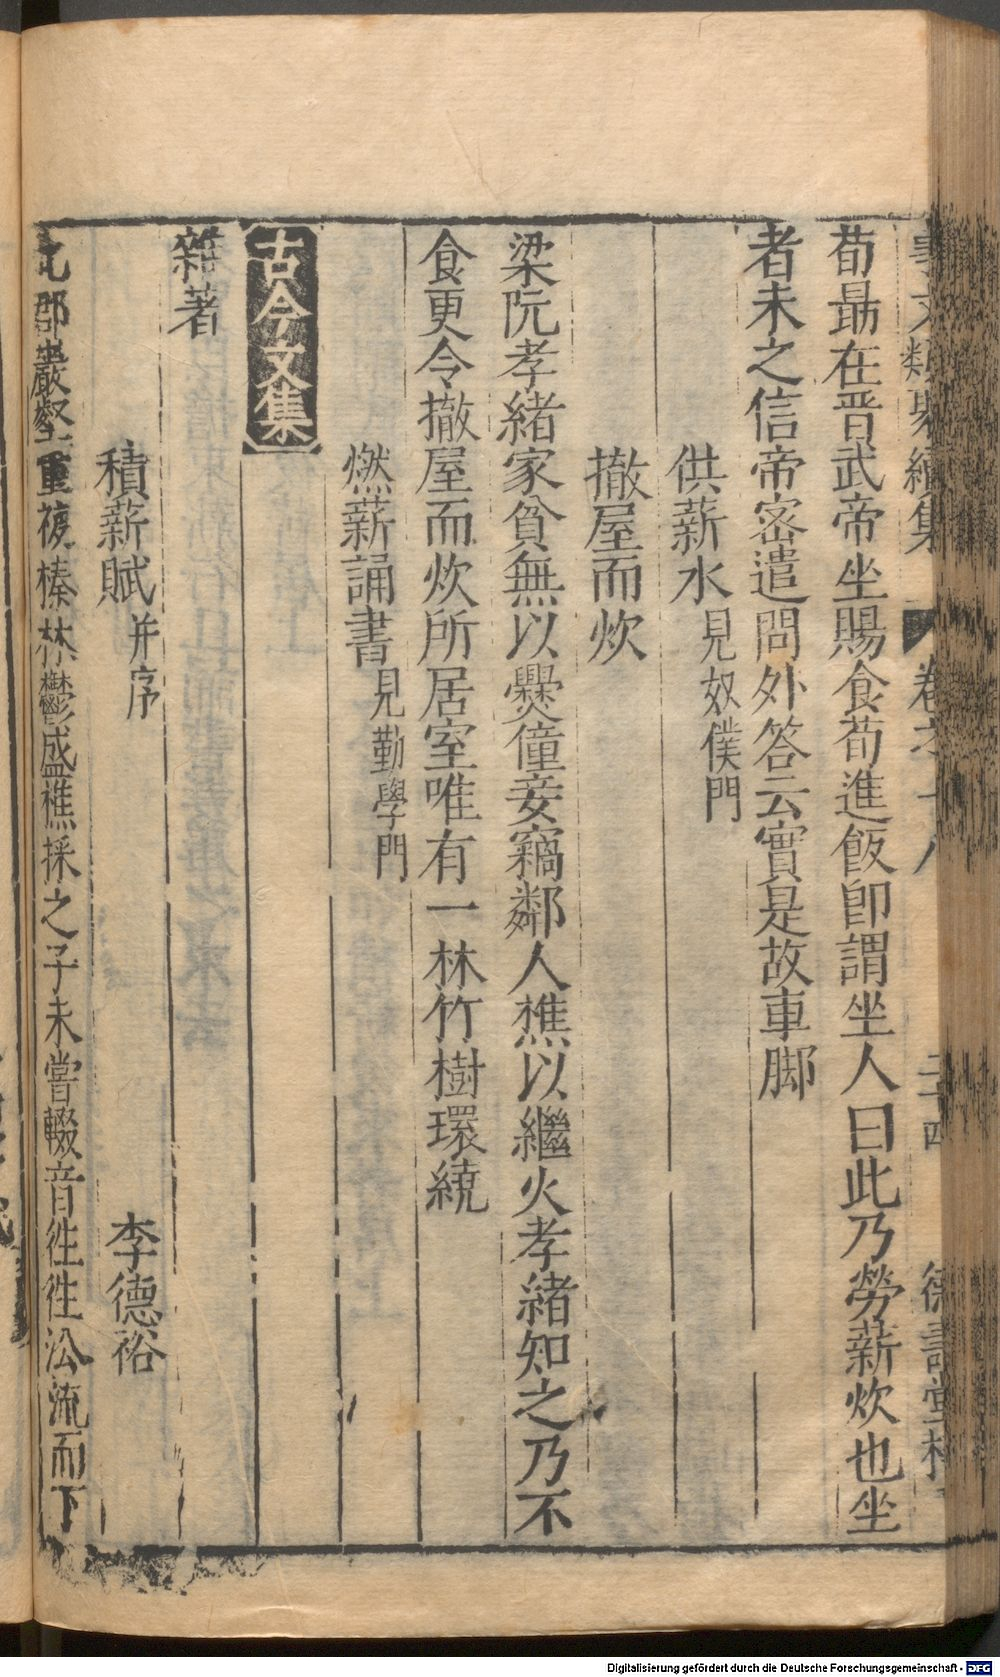 事文類聚續集 卷之十八 二十四 德壽堂梓
荀勗在晋武帝坐賜食荀進飯卽謂坐人曰此乃勞薪炊也坐
者未之信帝密遣問外答云實是故車脚
供薪水 見奴僕門
撤屋而炊
梁阮孝緒家貧無以㸑僮妾竊鄰人樵以繼火孝緒知之乃不
食更令撤屋而炊所居室唯有一林竹樹環繞
燃薪誦書 見勤學門
古今文集
雜著
積薪賦 并序 李德裕
此郡巖壑重複榛林鬱盛樵採之子未嘗輟音徃徃㳂流而下
Digitalisierung gefördert durch die Deutsche Forschungsgemeinschaft - DFG